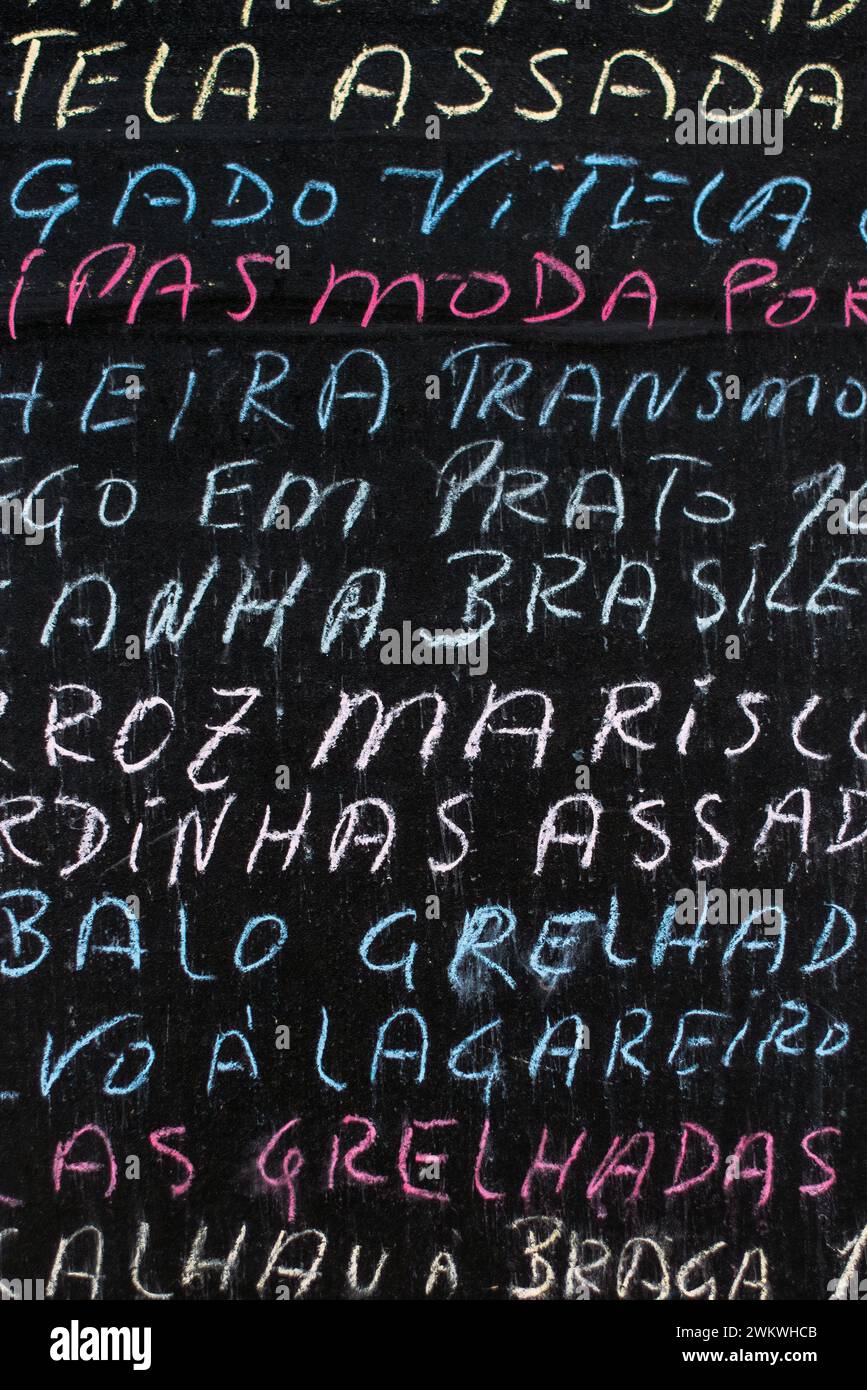 TELA ASSADA
GADO VITELA
IPAS MODA POR
HEIRA TRANSMO
EGO EM PRATO
CANHA BRASILE
RROZ MARISCO
RDINHAS ASSAD
BALO GRELHAD
LVO À LAGAREIRO
LAS GRELHADAS
CALHAU À BRAGA
alamy
Image ID: 2WKWHCB
www.alamy.com